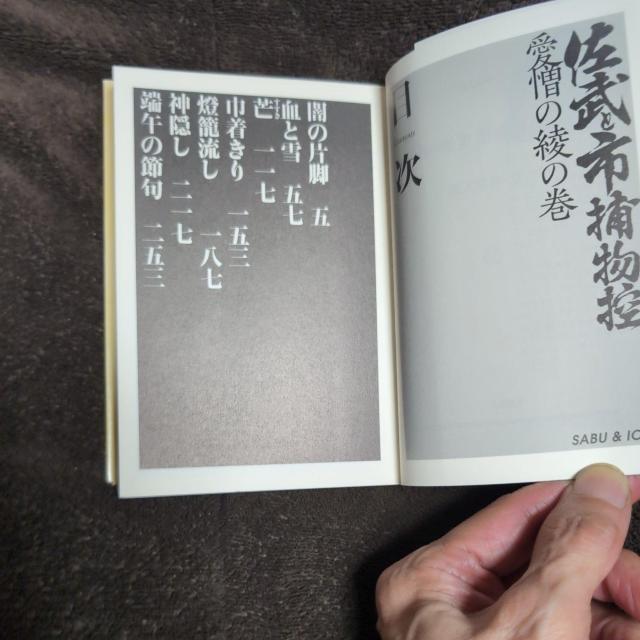 佐武と市捕物控
愛憎の綾の巻
目次
SABU & IC
闇の片脚 五
血と雪 五七
芒 一一七
巾着きり 一五三
燈籠流し 一八七
神隠し 二一七
端午の節句 二五三